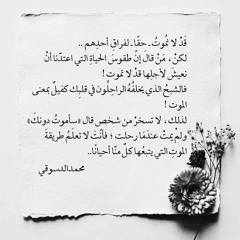 قَدْ لا نموتُ - حقًا - لفراقِ أحدِهم ..
لكنْ، مَنْ قالَ إنّ طقوسَ الحياةِ التي اعتدْنا أنْ
نعيشَ لأجلِها قدْ لا تموت !
فالشبحُ الذي يخلفُهُ الراحلُون في قلبِك كفيلٌ بمعنى
الموت !
لذلك ، لا تسخرْ من شخصٍ قال «سأموتُ دونَك»
ولم يمتْ عندَمَا رحلت ؛ فأنتَ لا تعلمُ طريقةَ
الموتِ التي يتبعُها كلٌ منّا أحيانًا..
محمد الدسوقي